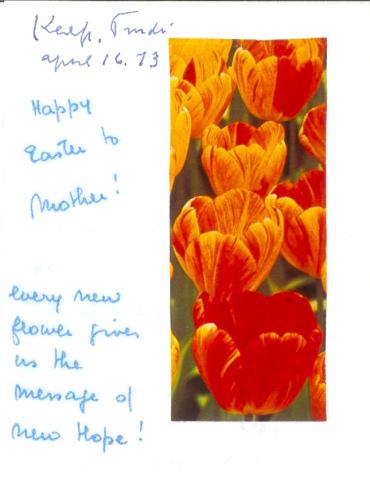 april 16. 73
Happy
Easter to
Mother!
every new
flower gives
us the
message of
new Hope!